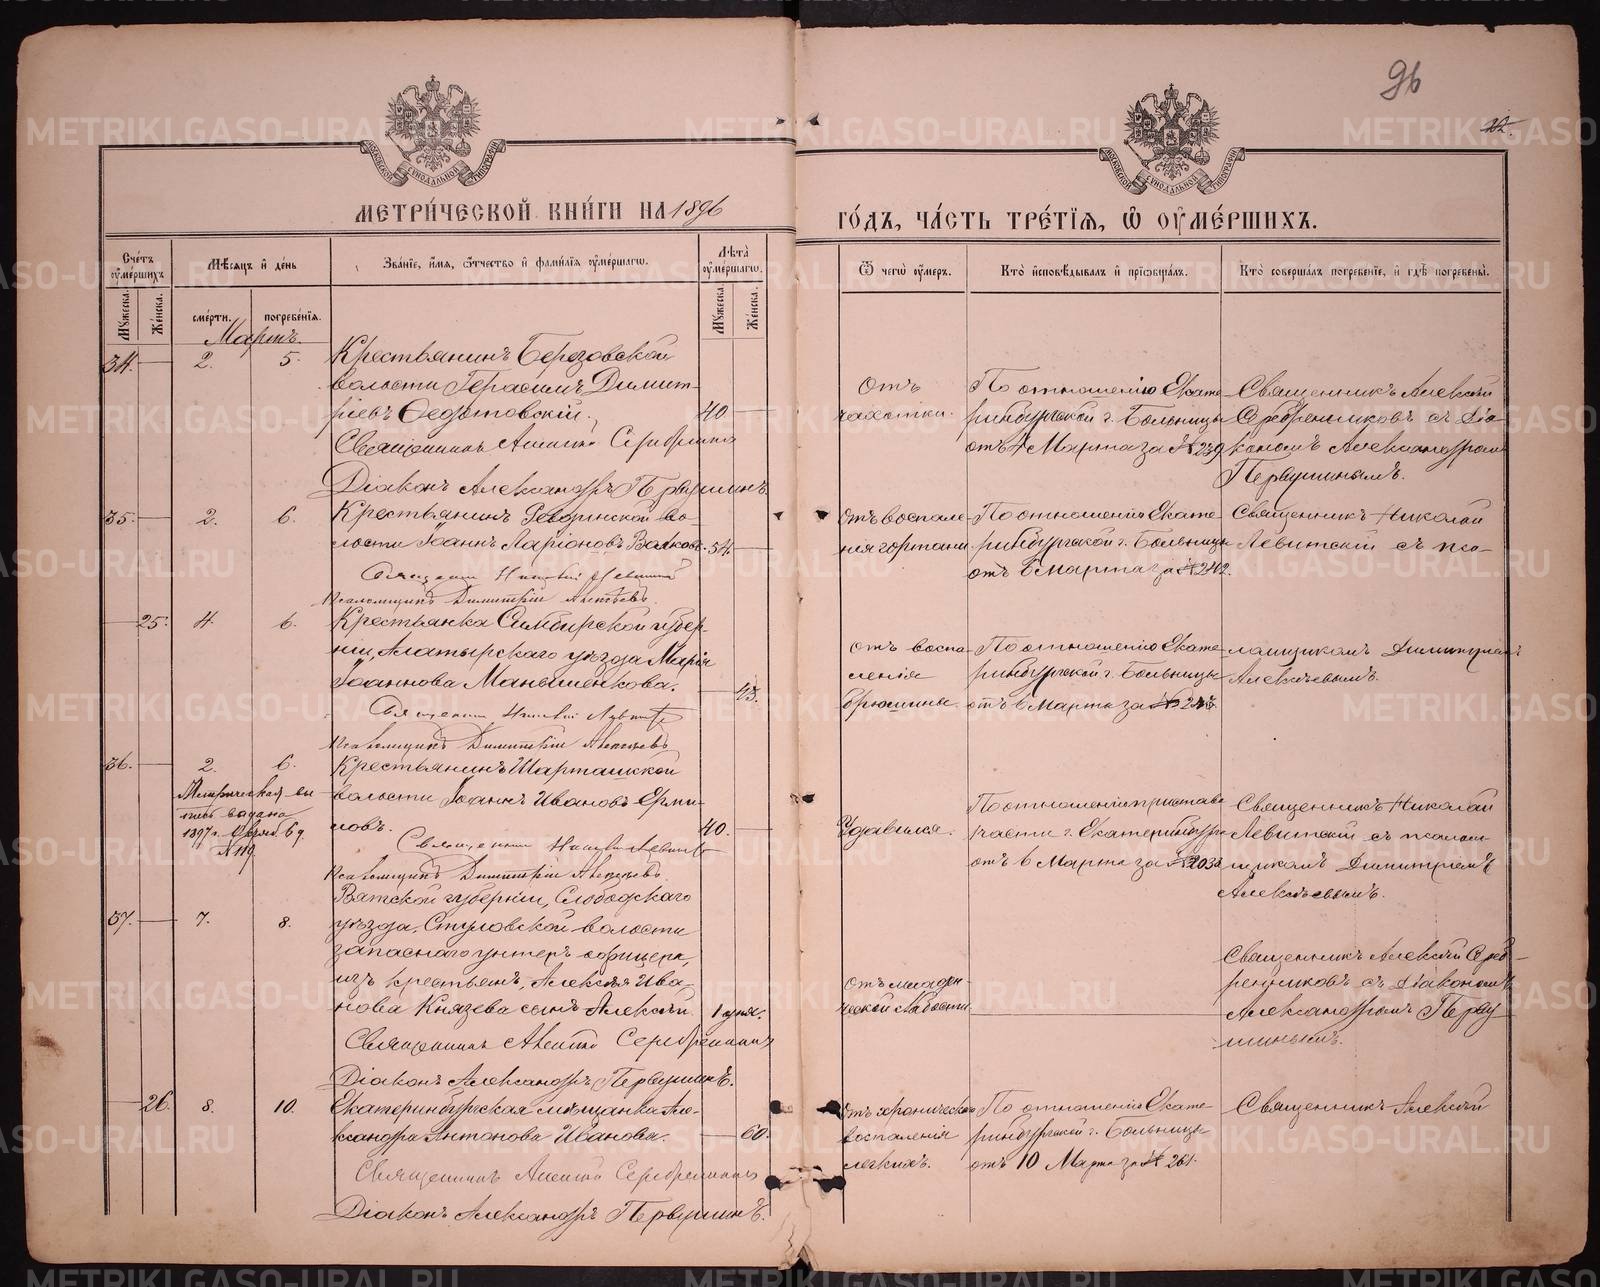 96
МОСКОВСКОЙ СѴНОДАЛЬНОЙ ТИПОГРАФІИ
МОСКОВСКОЙ СѴНОДАЛЬНОЙ ТИПОГРАФІИ
МЕТРИ́ЧЕСКОЙ КНИ́ГИ НА 1896
ГО́ДЪ, ЧА́СТЬ ТРЕ́ТІѦ, Ѽ ОУМЕ́РШИХЪ.
Сче́тъ оуме́ршихъ
Мѣ́сяцъ и҆ де́нь
Зва́ніе, и҆́мя, ѻ҆́тчество и҆ фами́лія оуме́ршагѡ.
Лѣ́та оуме́ршагѡ.
Ѿ чегѡ̀ оу́меръ.
Кто̀ и҆сповѣ́дывалъ и҆ прїѡбща́лъ.
Кто̀ соверша́лъ погребе́ніе, и҆ гдѣ̀ погребены̀.
Мꙋ́жеска.
Же́нска.
сме́рти.
погребе́нія.
Мꙋ́жеска.
Же́нска.
Мартъ.
34. 2. 5. Крестьянинъ Березовской
волости Герасимъ Димит-
ріевъ Ѳедотовскій. 40.
Священникъ Алексій Серебренниковъ
Діаконъ Александръ Первушинъ.
Отъ
чахотки.
По отношенію Екате-
ринбургской г. Больницы
отъ 4 Марта за № 239
Священникъ Алексій
Серебренниковъ съ Діа-
кономъ Александромъ
Первушинымъ.
35. 2. 6. Крестьянинъ Ревдинской во-
лости Іоаннъ Ларіоновъ Валковъ. 54.
Священникъ Николай Левитскій
Псаломщикъ Димитрій Алексѣевъ.
Отъ воспале-
нія гортани
По отношенію Екате-
ринбургской г. Больницы
отъ 6 Марта за № 242.
Священникъ Николай
Левитскій съ пса-
25. 4. 6. Крестьянка Симбирской губер-
ніи, Алатырскаго уѣзда Марія
Іоаннова Маньшенкова. 43.
Священникъ Николай Левитскій
Псаломщикъ Димитрій Алексѣевъ
отъ воспа-
ленія
брюшины.
По отношенію Екате-
ринбургской г. Больницы
отъ 6 Марта за №
ломщикомъ Димитріемъ
Алексѣевымъ.
36. 2. 6. Крестьянинъ Шарташской
волости Іоаннъ Ивановъ Ерми-
ловъ. 40.
Метрическая вы-
пись выдана
1897 г. 6 д.
№ 119
Священникъ Николай Левитскій
Псаломщикъ Димитрій Алексѣевъ.
Удавился.
По отношенію пристава
части г. Екатеринбурга
отъ 6 Марта за № 2033
Священникъ Николай
Левитскій съ псалом-
щикомъ Димитріемъ
Алексѣевымъ.
37. 7. 8. Вятской губерніи, Слободскаго
уѣзда, Стуловской волости
запаснаго унтеръ-офицера,
изъ крестьянъ, Алексѣя Ива-
нова Князева сынъ Алексѣй.
Священникъ Алексій Серебренниковъ
Діаконъ Александръ Первушинъ.
отъ младен-
ческой слабости
Священникъ Алексій Сереб-
ренниковъ съ Діакономъ
Александромъ Перву-
шинымъ.
26. 8. 10. Екатеринбургская мѣщанка Але-
ксандра Антонова Иванова. 60.
Священникъ Алексій Серебренниковъ
Діаконъ Александръ Первушинъ.
отъ хроническаго
воспаленія
легкихъ.
По отношенію Екате-
ринбургской г. Больницы
отъ 10 Марта за № 261.
Священникъ Алексій
METRIKI.GASO-URAL.RU